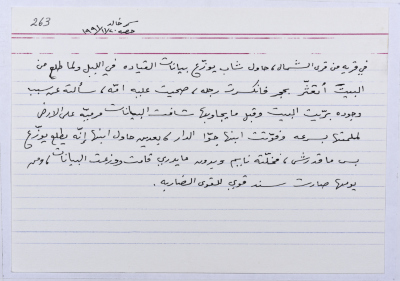 263
في قرية من قرى الشمال، حاول شاب يوزّع بيانات القيادة في الليل ولما طلع من
البيت أتعثّر بحجر فانكسرت رجله، صحيت عليه امّه، سألته عن سبب
وجوده برّيت البيت وقبل ما يجاوبها شافت البيانات مرميّة على الارض
لملمتها بسرعه وفوّتت ابنها جوّا الدار، بعدين حاول ابنها إنّه يطلع يوزّع
بس ما قدرش، فخلّته نايم وبدون ما يدري قامت ووزعت البيانات، ومن
يومها صارت سند قوي للقوى الضاربه.